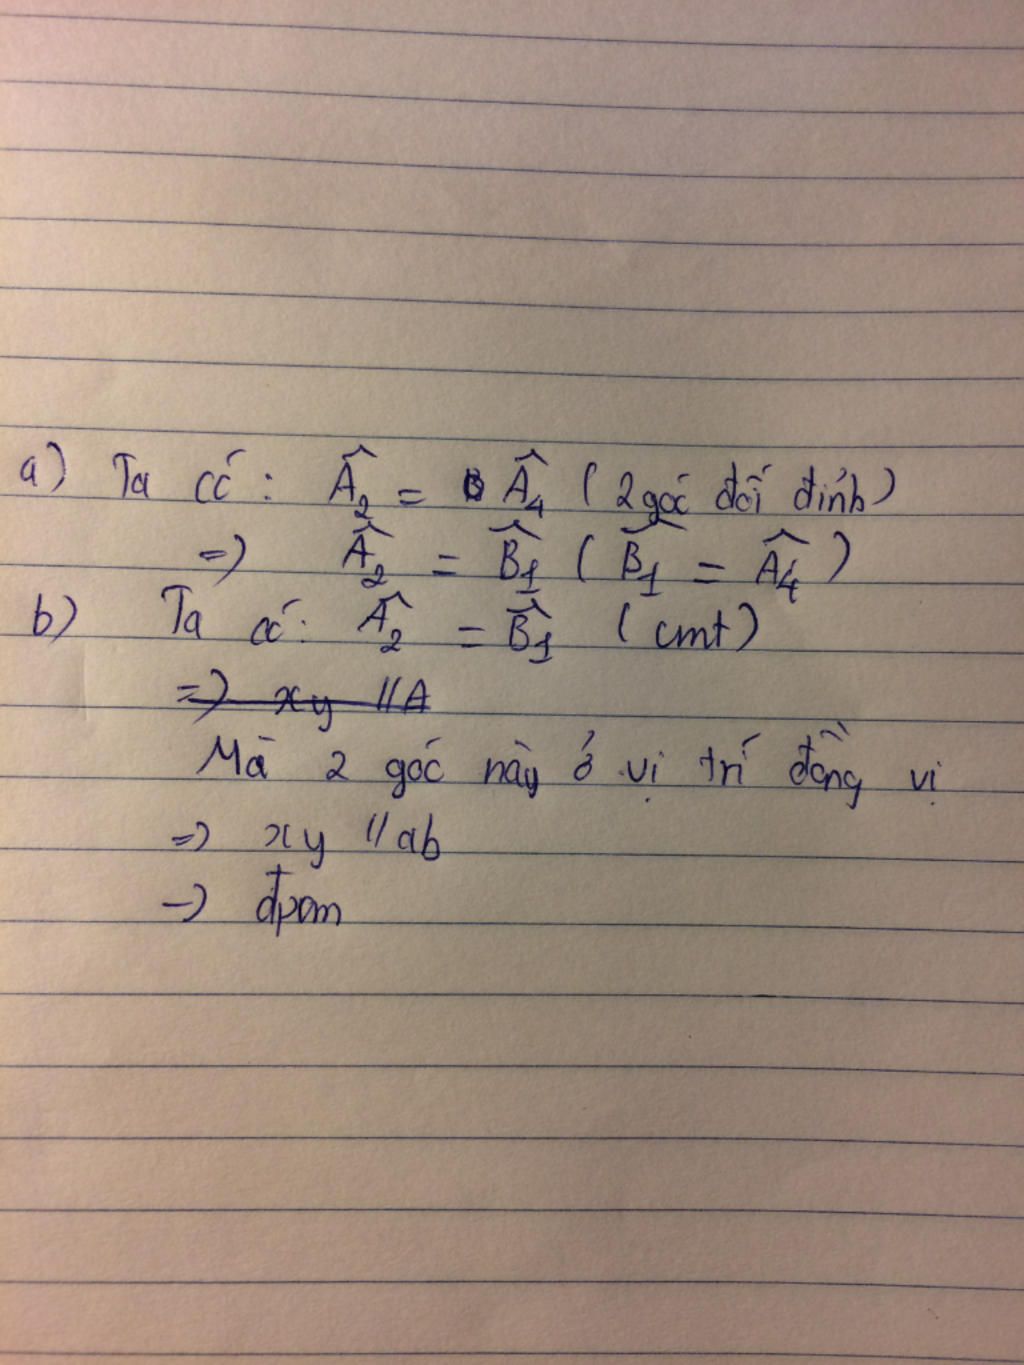 a) Ta có: Â₂ = Â₄ (2 góc đối đỉnh)
=> Â₂ = B̂₁ (B̂₁ = Â₄)
b) Ta có: Â₂ = B̂₁ (cmt)
=> xy // A
Mà 2 góc này ở vị trí đồng vị
=> xy // ab
-> đpcm